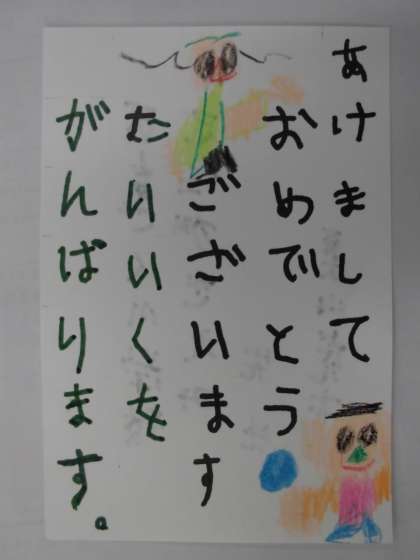 あけまして
おめでとう
ございます
たいいくを
がんばります。